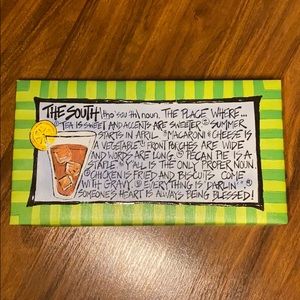 THE SOUTH \thə 'sou th\ noun. THE PLACE WHERE...
①TEA IS SWEET AND ACCENTS ARE SWEETER ②SUMMER
STARTS IN APRIL. ③MACARONI & CHEESE IS
A VEGETABLE ④FRONT PORCHES ARE WIDE
AND WORDS ARE LONG. ⑤PECAN PIE IS A
STAPLE ⑥Y'ALL IS THE ONLY PROPER NOUN.
⑦CHICKEN IS FRIED AND BISCUITS COME
WITH GRAVY. ⑧EVERYTHING IS DARLIN' ⑨
SOMEONE'S HEART IS ALWAYS BEING BLESSED!